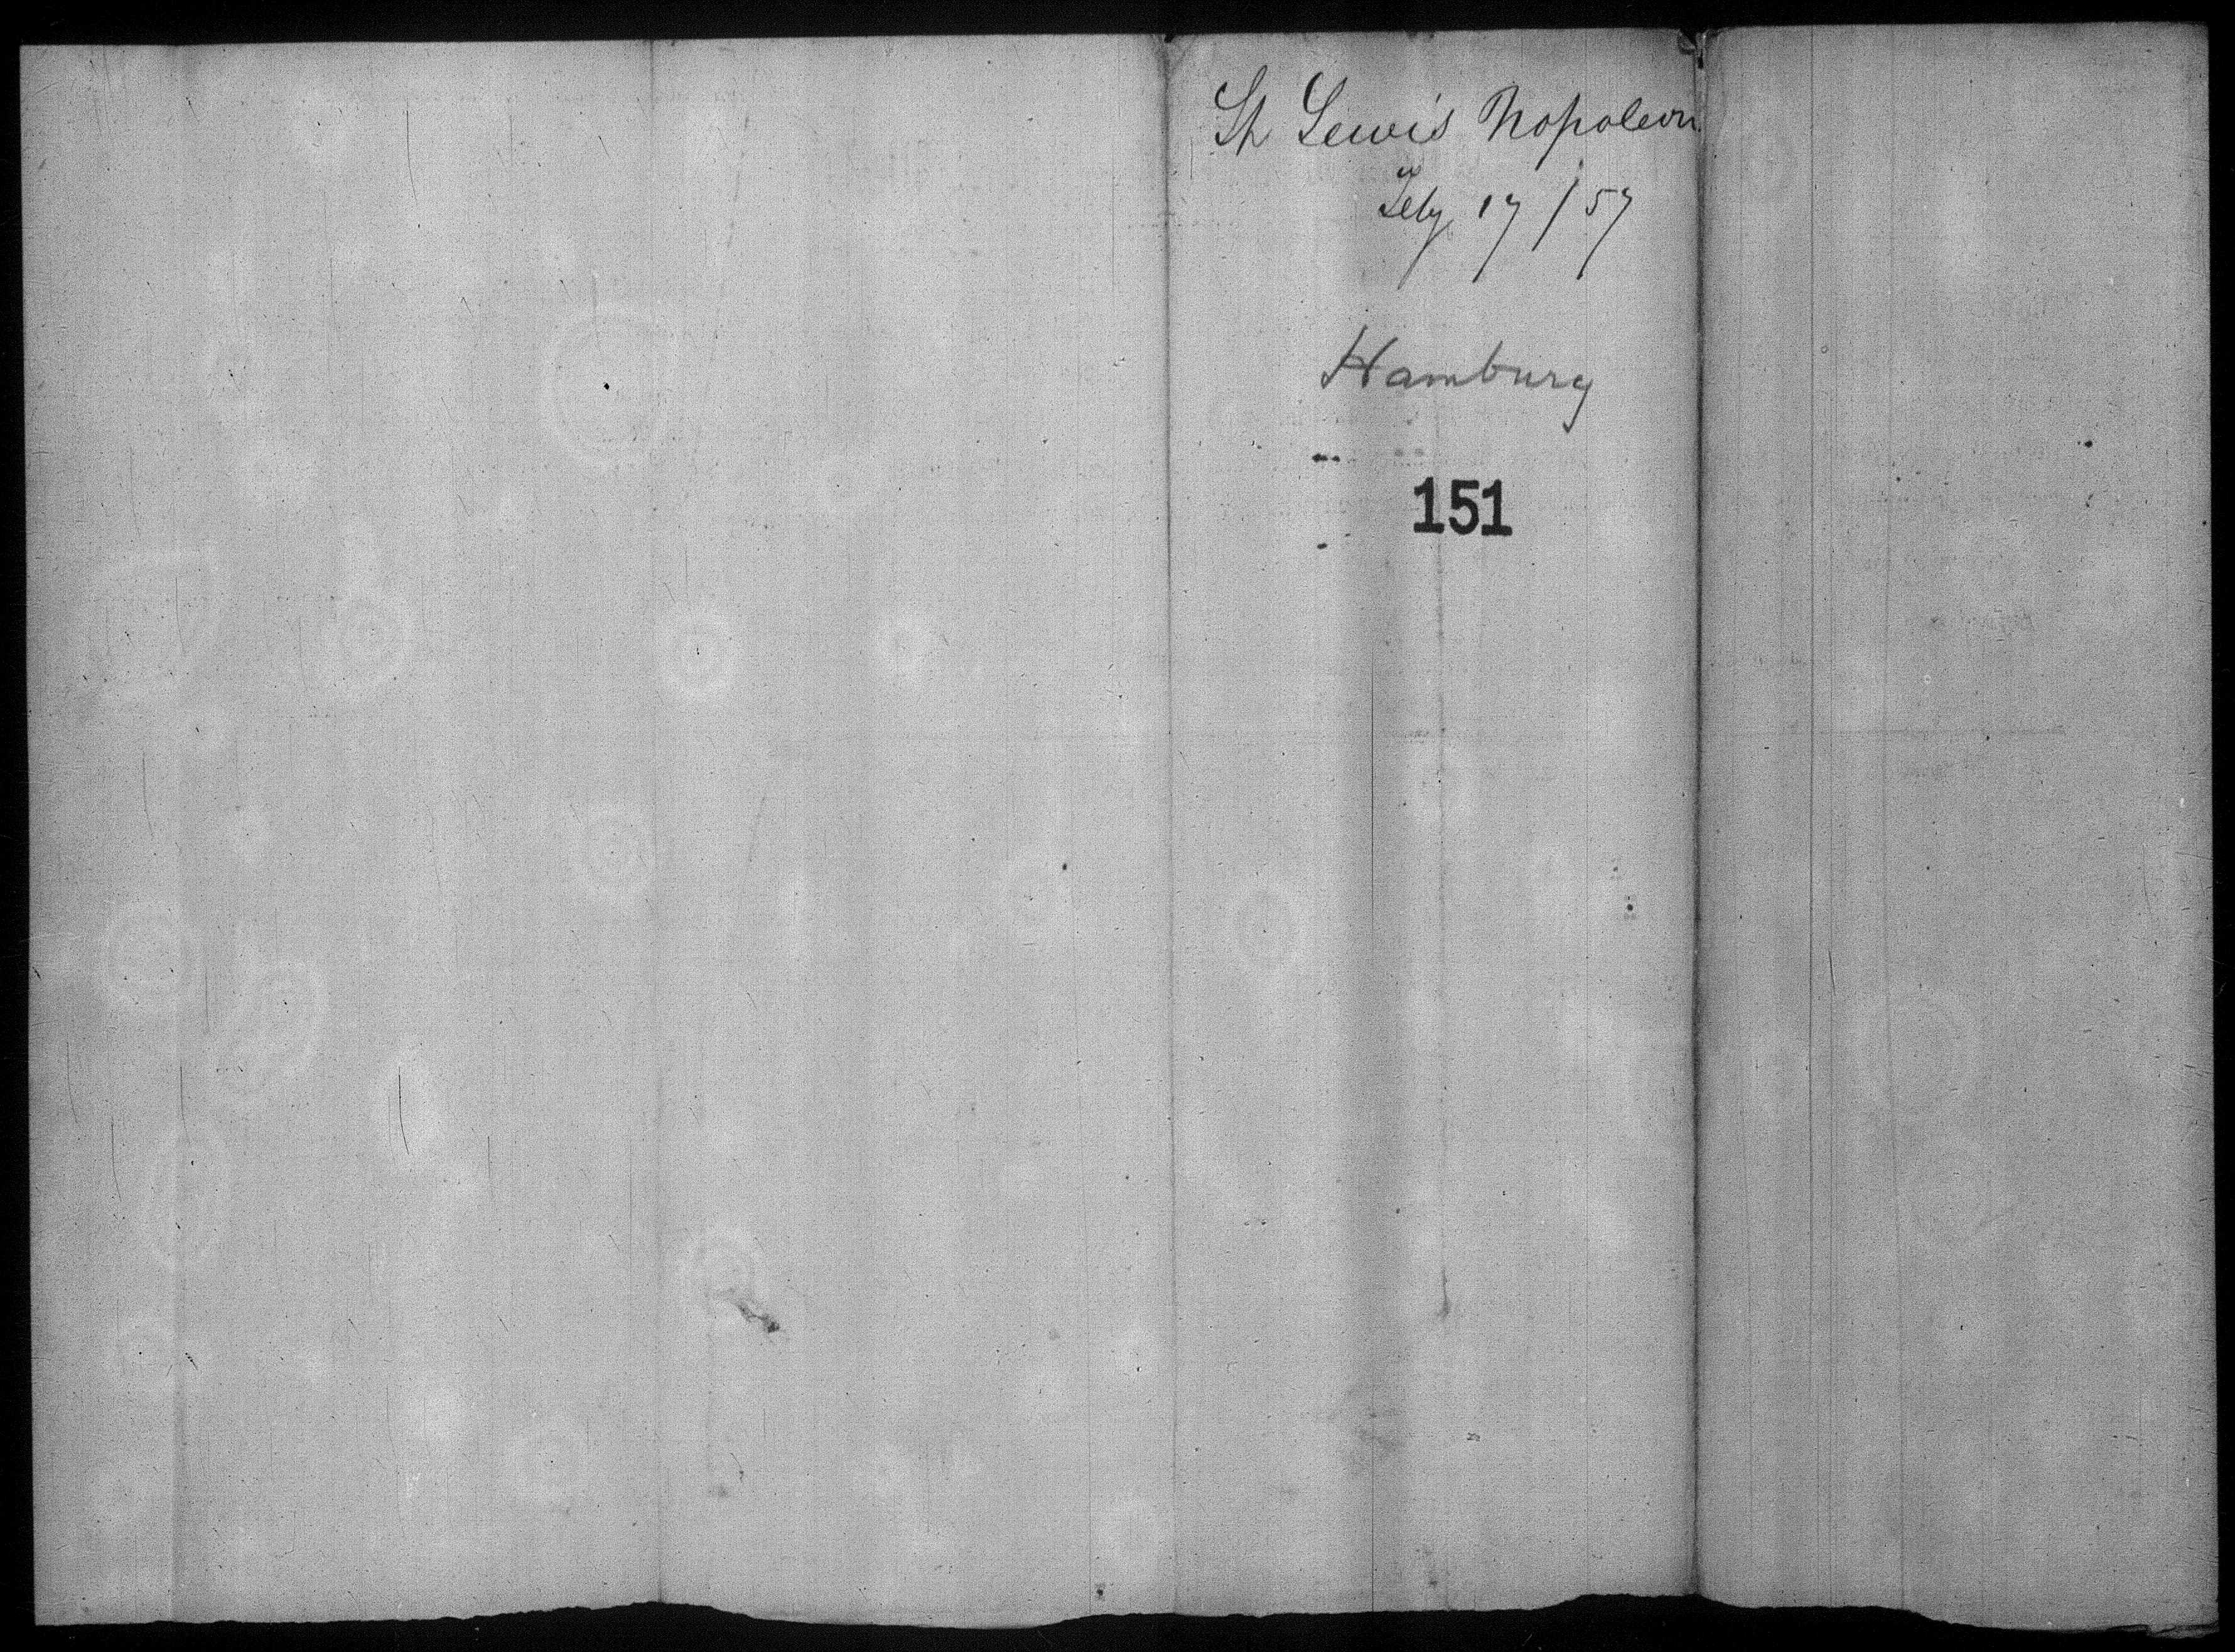 Sh Lewis Napoleon
July 17/57
Hamburg
151